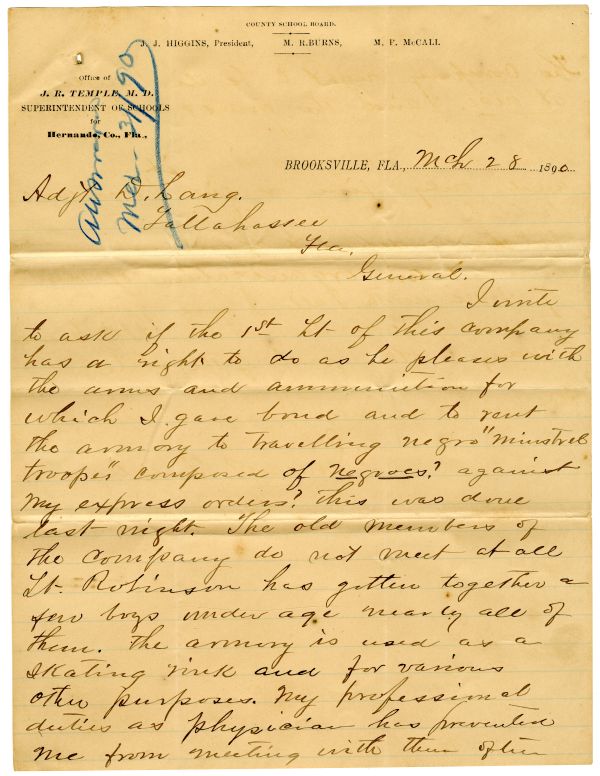 COUNTY SCHOOL BOARD.
J. J. HIGGINS, President, M. R. BURNS, M. F. McCALL
Office of
J. R. TEMPLE, M. D.
SUPERINTENDENT OF SCHOOLS
for
Hernando, Co., Fla.,
Mch 31/90
BROOKSVILLE, FLA., Mch 28 1890
Adjt D. Lang.
Tallahassee
Fla.
General.
I write
to ask if the 1st Lt of this company
has a right to do as he pleases with
the arms and ammunition for
which I gave bond and to rent
the armory to travelling negro "minstrel
troope" composed of negroes? against
my express orders? This was done
last night. The old members of
the company do not meet at all
Lt. Robinson has gotten together a
few boys under age nearly all of
them. The armory is used as a
skating rink and for various
other purposes. My professional
duties as physician has prevented
me from meeting with them often